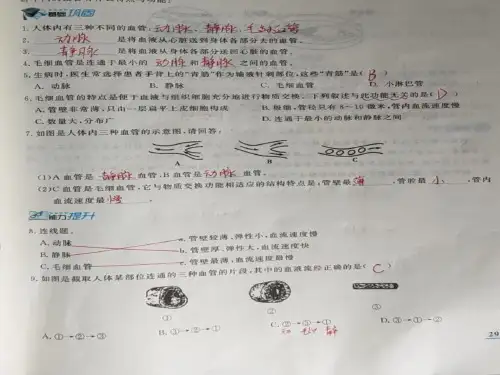 基础巩固
1. 人体内有三种不同的血管:动脉、静脉、毛细血管
2. 动脉 是将血液从心脏送到身体各部分去的血管。
3. 静脉 是将血液从身体各部分送回心脏的血管。
4. 毛细血管是连通于最小的 动脉 和 静脉 之间的血管。
5. 生病时,医生常选择患者手背上的“青筋”作为输液针刺部位,这些“青筋”是( B )
A. 动脉 B. 静脉 C. 毛细血管 D. 小淋巴管
6. 毛细血管的特点是便于血液与组织细胞充分地进行物质交换。下列叙述与此功能无关的是( D )
A. 管壁非常薄,只由一层扁平上皮细胞构成 B. 极细,管径只有8—10微米,管内血流速度慢
C. 数量大,分布广 D. 连通于最小的动脉和静脉之间
7. 如图是人体内三种血管的示意图,请回答:
A B C
(1)A血管是 静脉 血管,B血管是 动脉 血管。
(2)C血管是毛细血管,它与物质交换功能相适应的结构特点是:管壁最 薄 ,管腔最 小 ,管内
血流速度最 慢 。
能力提升
8. 连线题。
A. 动脉 a. 管壁较薄,弹性小,血流速度慢
B. 静脉 b. 管壁厚,弹性大,血流速度快
C. 毛细血管 c. 管壁最薄,血流速度最慢
9. 如图是截取人体某部位连通的三种血管的片段,其中的血液流经正确的是( C )
① ② ③
A. ①→②→③ B. ①→③→② C. ②→③→① D. ③→①→②
动 毛 静
29